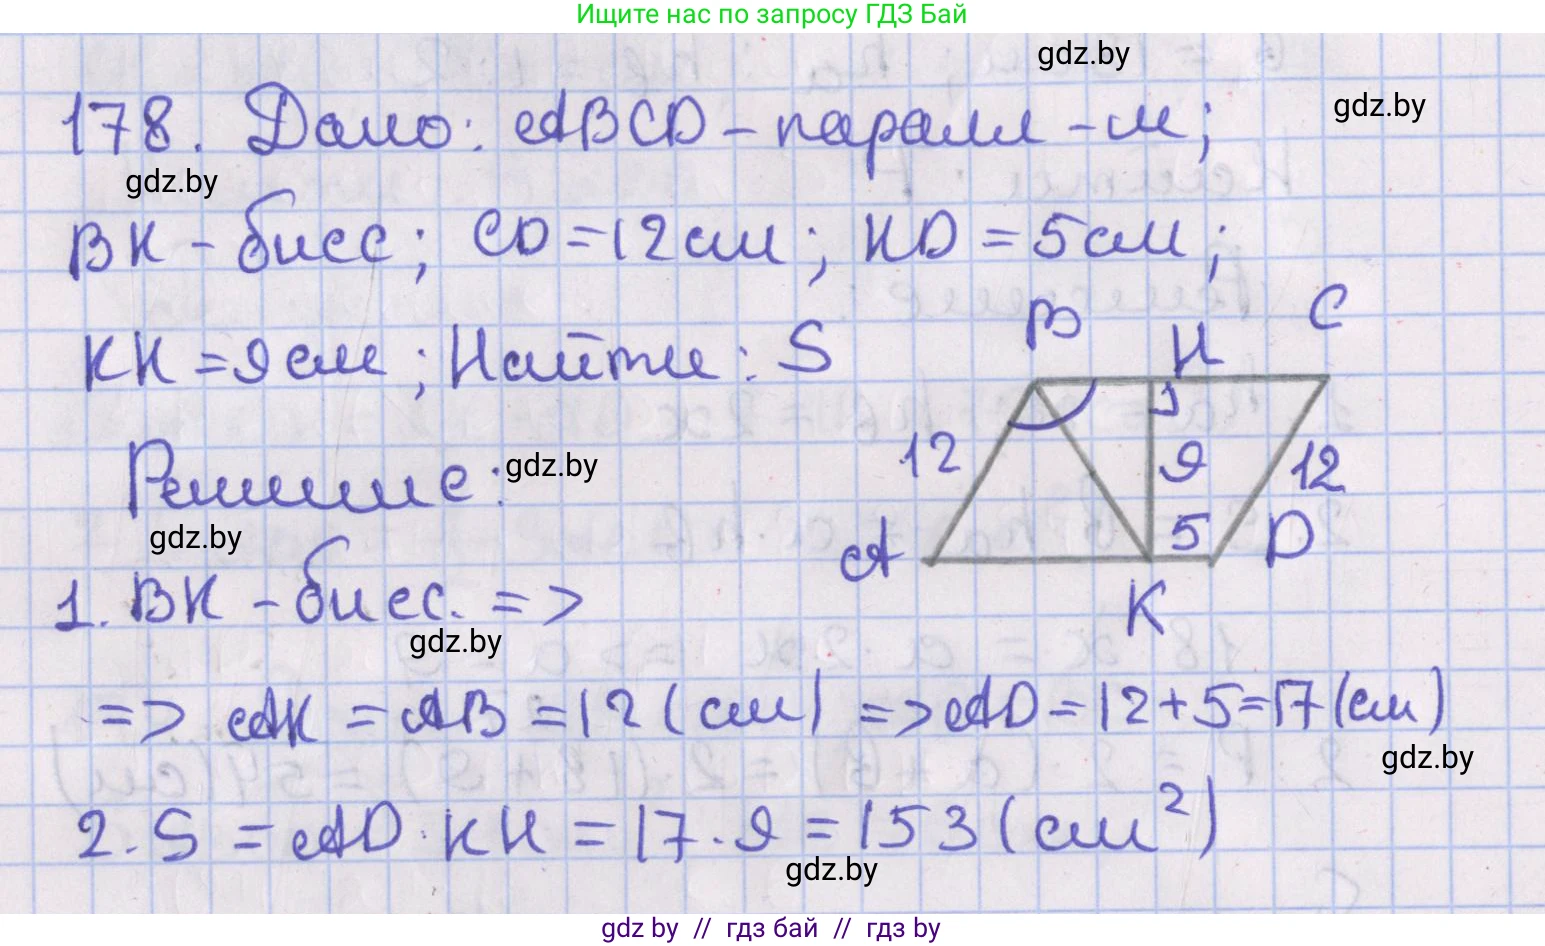 Ищите нас по запросу ГДЗ Бай
gdz.by
gdz.by
178. Дано: ABCD - паралл-м;
gdz.by
BK - бисс; CD = 12 см; KD = 5 см;
B H C
KH = 9 см; Найти: S
12 9 12
Решение:
gdz.by
gdz.by
A 5 D
K
1. BK - бисс. =>
gdz.by
=> AK = AB = 12 (см) => AD = 12 + 5 = 17 (см)
gdz.by
2. S = AD · KH = 17 · 9 = 153 (см²)
gdz.by
gdz by // гдз бай // гдз by